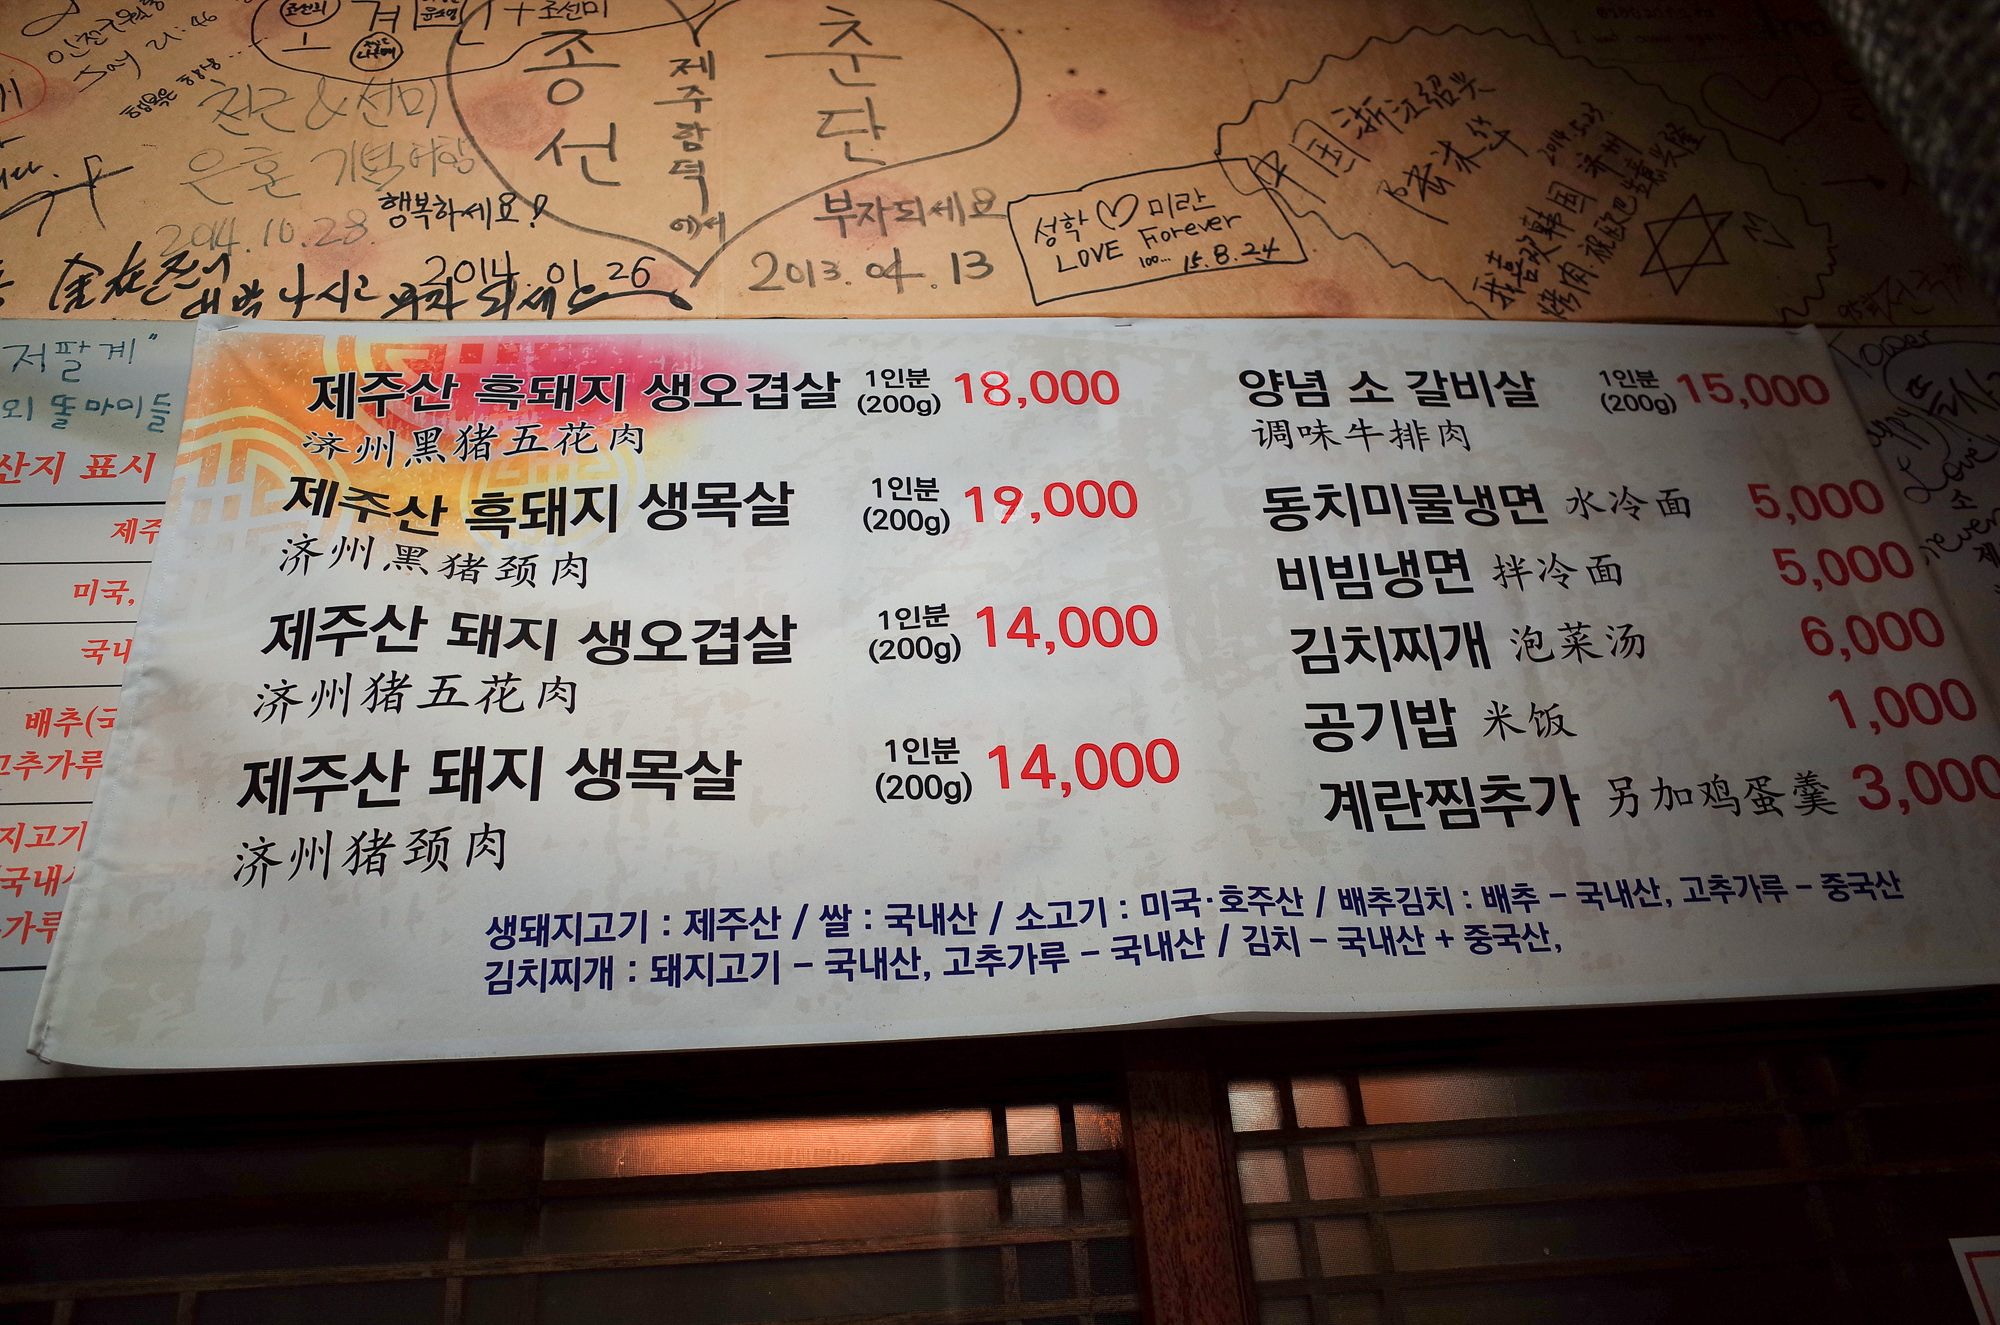 종선
제주함덕에서
춘단
친근&선미
은혼 기념여행
2014.10.28.
행복하세요!
2014. 01. 26
부자되세요
2013. 04. 13
성학 ♡ 미란
LOVE Forever
100... 15. 8. 24
中国 浙江绍兴
2014.5.23.
저팔계"
외 똘마이들
산지 표시
제주
미국,
국내
배추(국
고추가루
지고기
국내
가루
제주산 흑돼지 생오겹살 1인분 (200g) 18,000
济州黑猪五花肉
제주산 흑돼지 생목살 1인분 (200g) 19,000
济州黑猪颈肉
제주산 돼지 생오겹살 1인분 (200g) 14,000
济州猪五花肉
제주산 돼지 생목살 1인분 (200g) 14,000
济州猪颈肉
양념 소 갈비살 1인분 (200g) 15,000
调味牛排肉
동치미물냉면 水冷面 5,000
비빔냉면 拌冷面 5,000
김치찌개 泡菜汤 6,000
공기밥 米饭 1,000
계란찜추가 另加鸡蛋羹 3,000
생돼지고기 : 제주산 / 쌀 : 국내산 / 소고기 : 미국·호주산 / 배추김치 : 배추 - 국내산, 고추가루 - 중국산
김치찌개 : 돼지고기 - 국내산, 고추가루 - 국내산 / 김치 - 국내산 + 중국산,